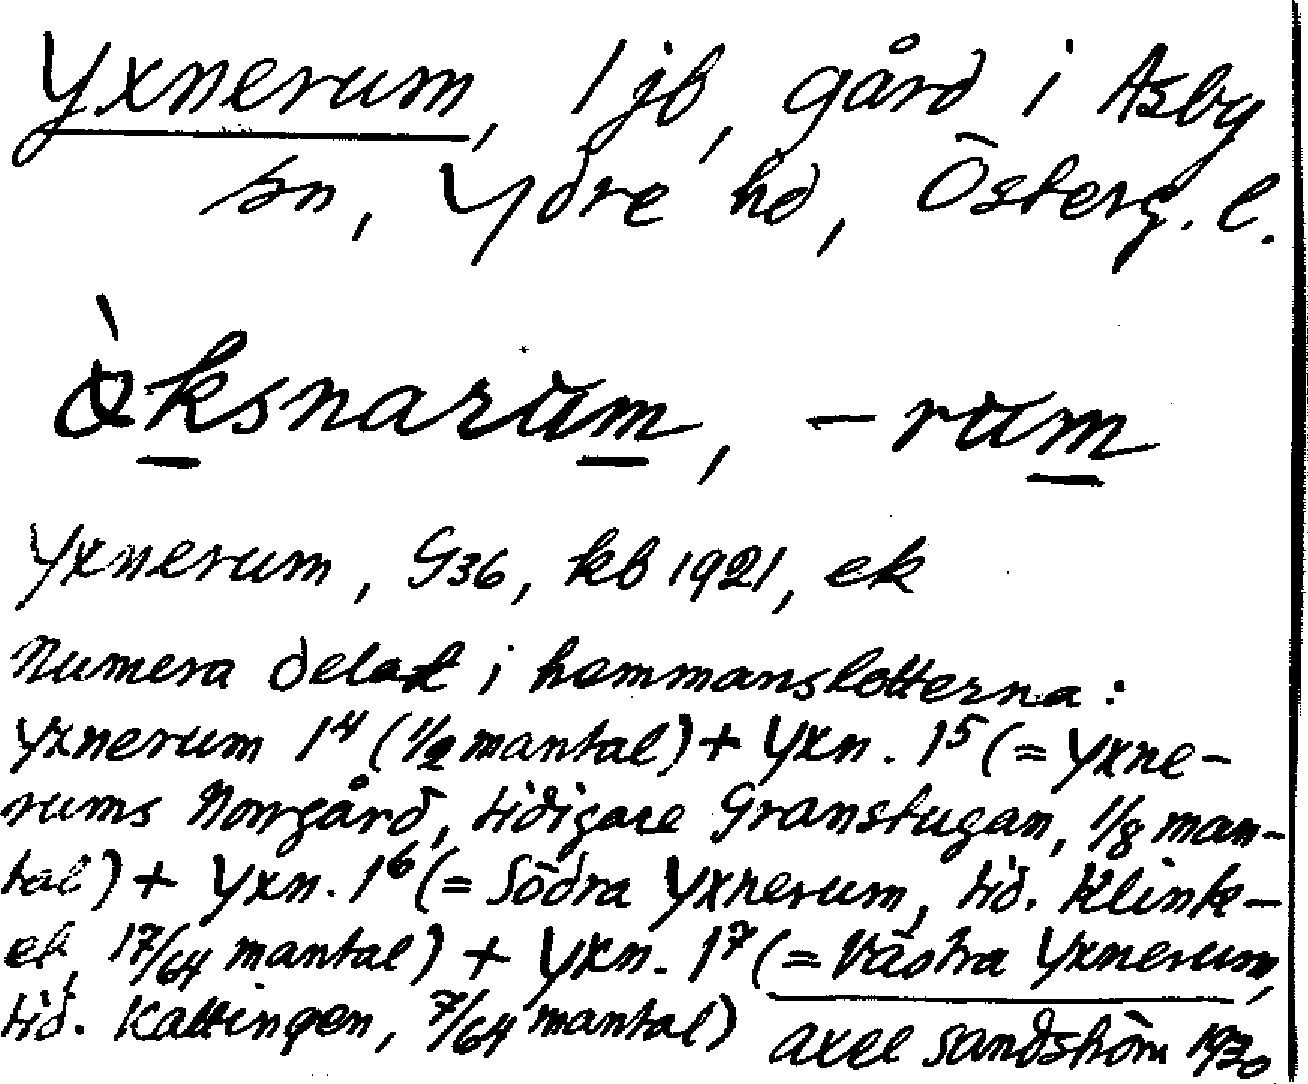 Yxnerum, 1 jb, gård i Asby
sn, Ydre hd, Österg. l.
òksnarum, -rum
Yxnerum, G36, kb 1921, ek
Numera delad i hemmanslotterna:
Yxnerum 1⁴ (1/2 mantal) + Yxn. 1⁵ (= Yxne-
rums Norrgård, tidigare Granstugan, 1/8 man-
tal) + Yxn. 1⁶ (= Södra Yxnerum, tid. Klink-
ek, 17/64 mantal) + Yxn. 1⁷ (= Västra Yxnerum,
tid. Kattingen, 7/64 mantal) Axel Sandström 1930